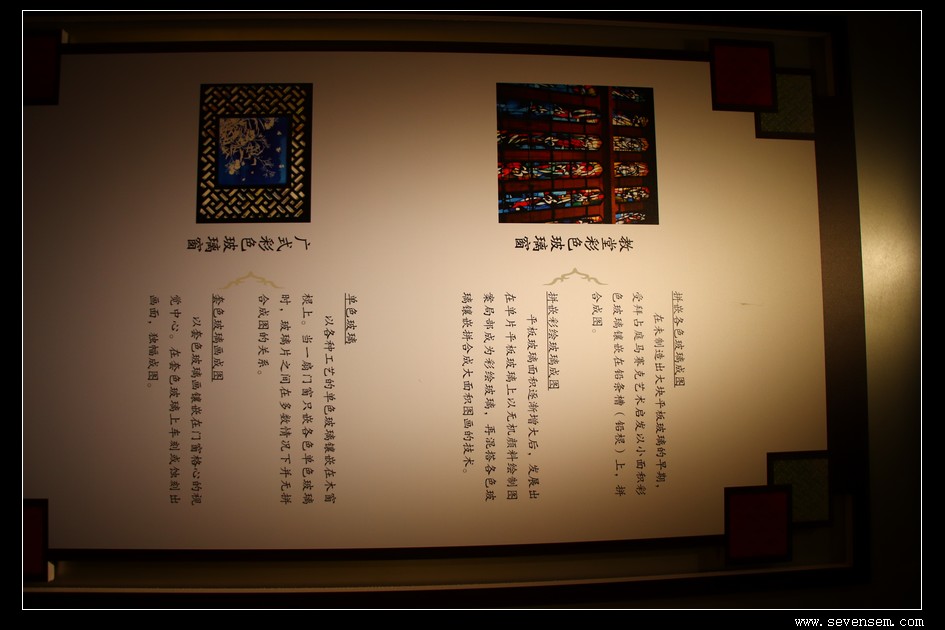 教堂彩色玻璃窗
拼嵌各色玻璃成图
在未制造出大块平板玻璃的早期，
受拜占庭马赛克艺术启发以小面积彩
色玻璃镶嵌在铅条槽（铅根）上，拼
合成图。
拼嵌彩绘玻璃成图
平板玻璃面积逐渐增大后，发展出
在单片平板玻璃上以无机颜料绘制图
案局部成为彩绘玻璃，再混搭各色玻
璃镶嵌拼合成大面积图画的技术。
广式彩色玻璃窗
单色玻璃
以各种工艺的单色玻璃镶嵌在木窗
根上。当一扇门窗只嵌各色单色玻璃
时，玻璃片之间在多数情况下并无拼
合成图的关系。
套色玻璃画成图
以套色玻璃画镶嵌在门窗格心的视
觉中心。在套色玻璃上车刻或蚀刻出
画面，独幅成图。
www.sevensem.com